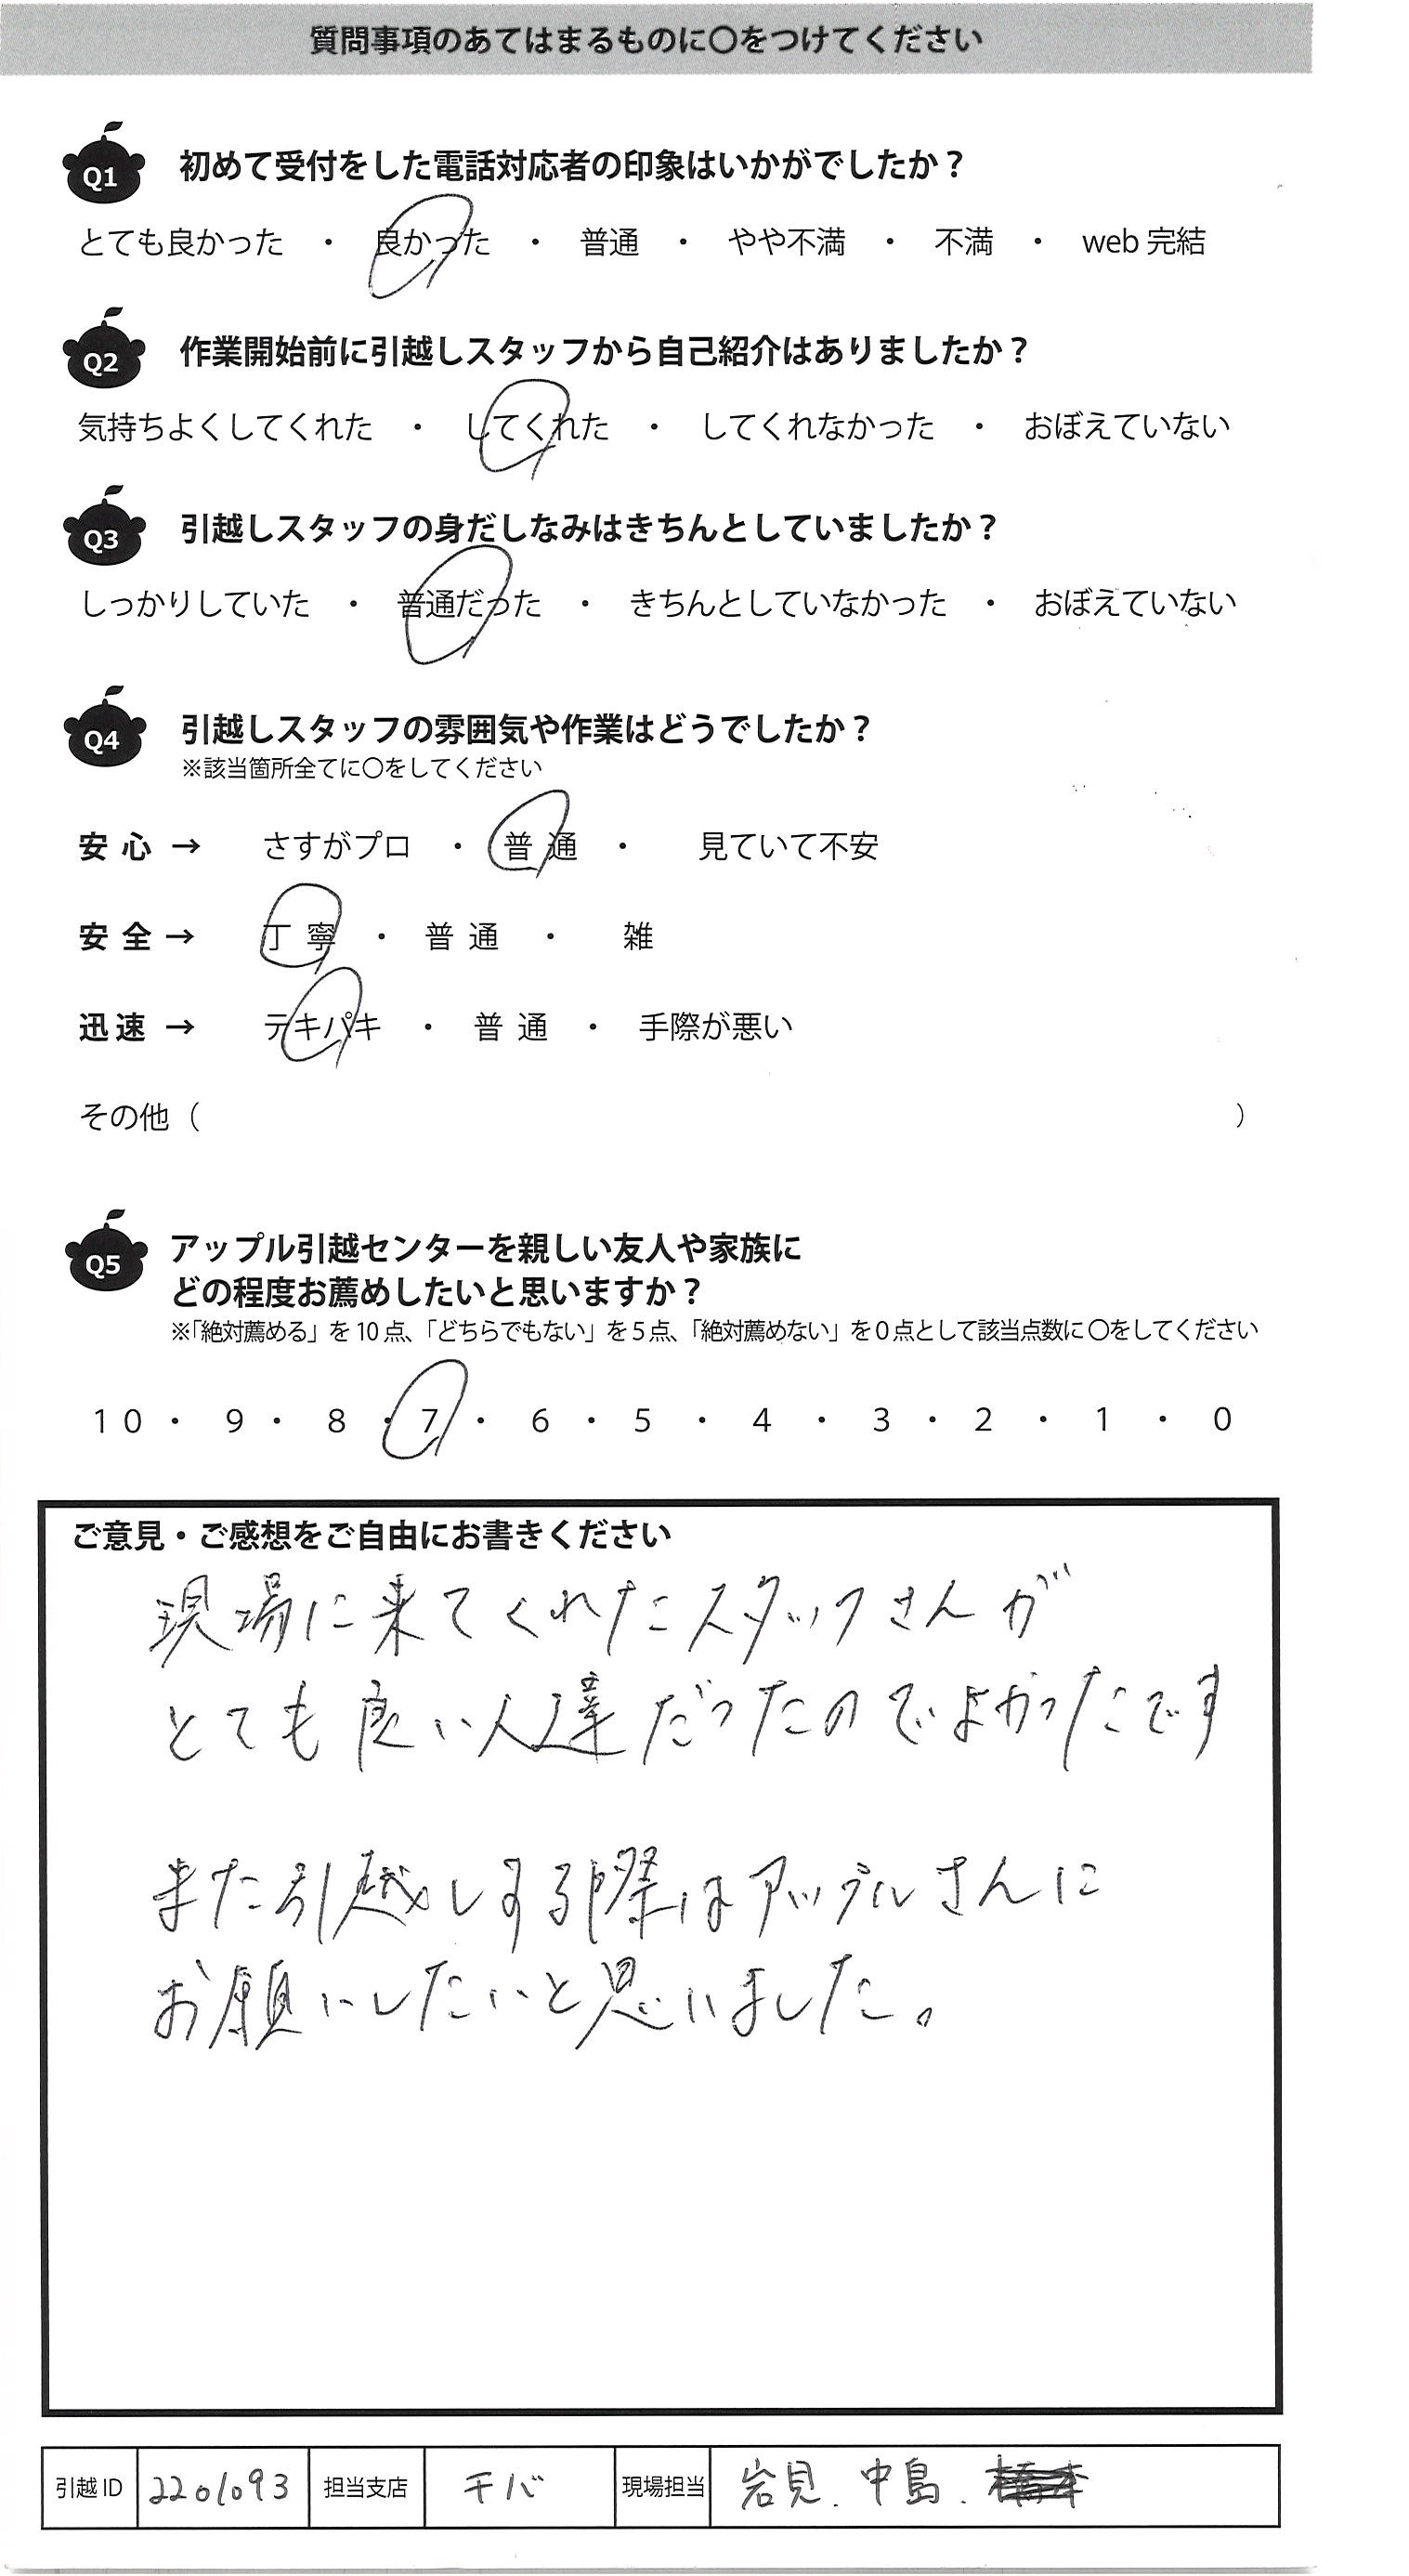 質問事項のあてはまるものに〇をつけてください
Q1 初めて受付をした電話対応者の印象はいかがでしたか？
とても良かった ・ 良かった ・ 普通 ・ やや不満 ・ 不満 ・ web 完結
Q2 作業開始前に引越しスタッフから自己紹介はありましたか？
気持ちよくしてくれた ・ してくれた ・ してくれなかった ・ おぼえていない
Q3 引越しスタッフの身だしなみはきちんとしていましたか？
しっかりしていた ・ 普通だった ・ きちんとしていなかった ・ おぼえていない
Q4 引越しスタッフの雰囲気や作業はどうでしたか？
※該当箇所全てに〇をしてください
安心 → さすがプロ ・ 普通 ・ 見ていて不安
安全 → 丁寧 ・ 普通 ・ 雑
迅速 → テキパキ ・ 普通 ・ 手際が悪い
その他（ ）
Q5 アップル引越センターを親しい友人や家族に
どの程度お薦めしたいと思いますか？
※「絶対薦める」を10点、「どちらでもない」を5点、「絶対薦めない」を0点として該当点数に〇をしてください
10 ・ 9 ・ 8 ・ 7 ・ 6 ・ 5 ・ 4 ・ 3 ・ 2 ・ 1 ・ 0
ご意見・ご感想をご自由にお書きください
現場に来てくれたスタッフさんが
とても良い人達だったのでよかったです
また引越しする際はアップルさんに
お願いしたいと思いました。
引越ID 2201093 担当支店 チバ 現場担当 岩見. 中島.